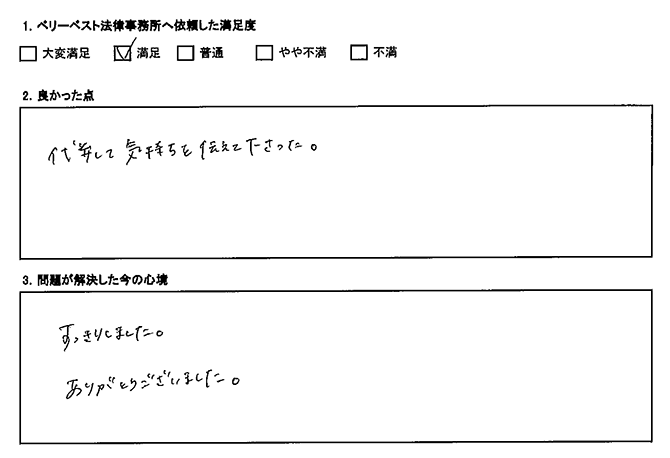 1. ベリーベスト法律事務所へ依頼した満足度
□ 大変満足 ☑ 満足 □ 普通 □ やや不満 □ 不満
2. 良かった点
代弁して気持ちを伝えて下さった。
3. 問題が解決した今の心境
すっきりしました。
ありがとうございました。